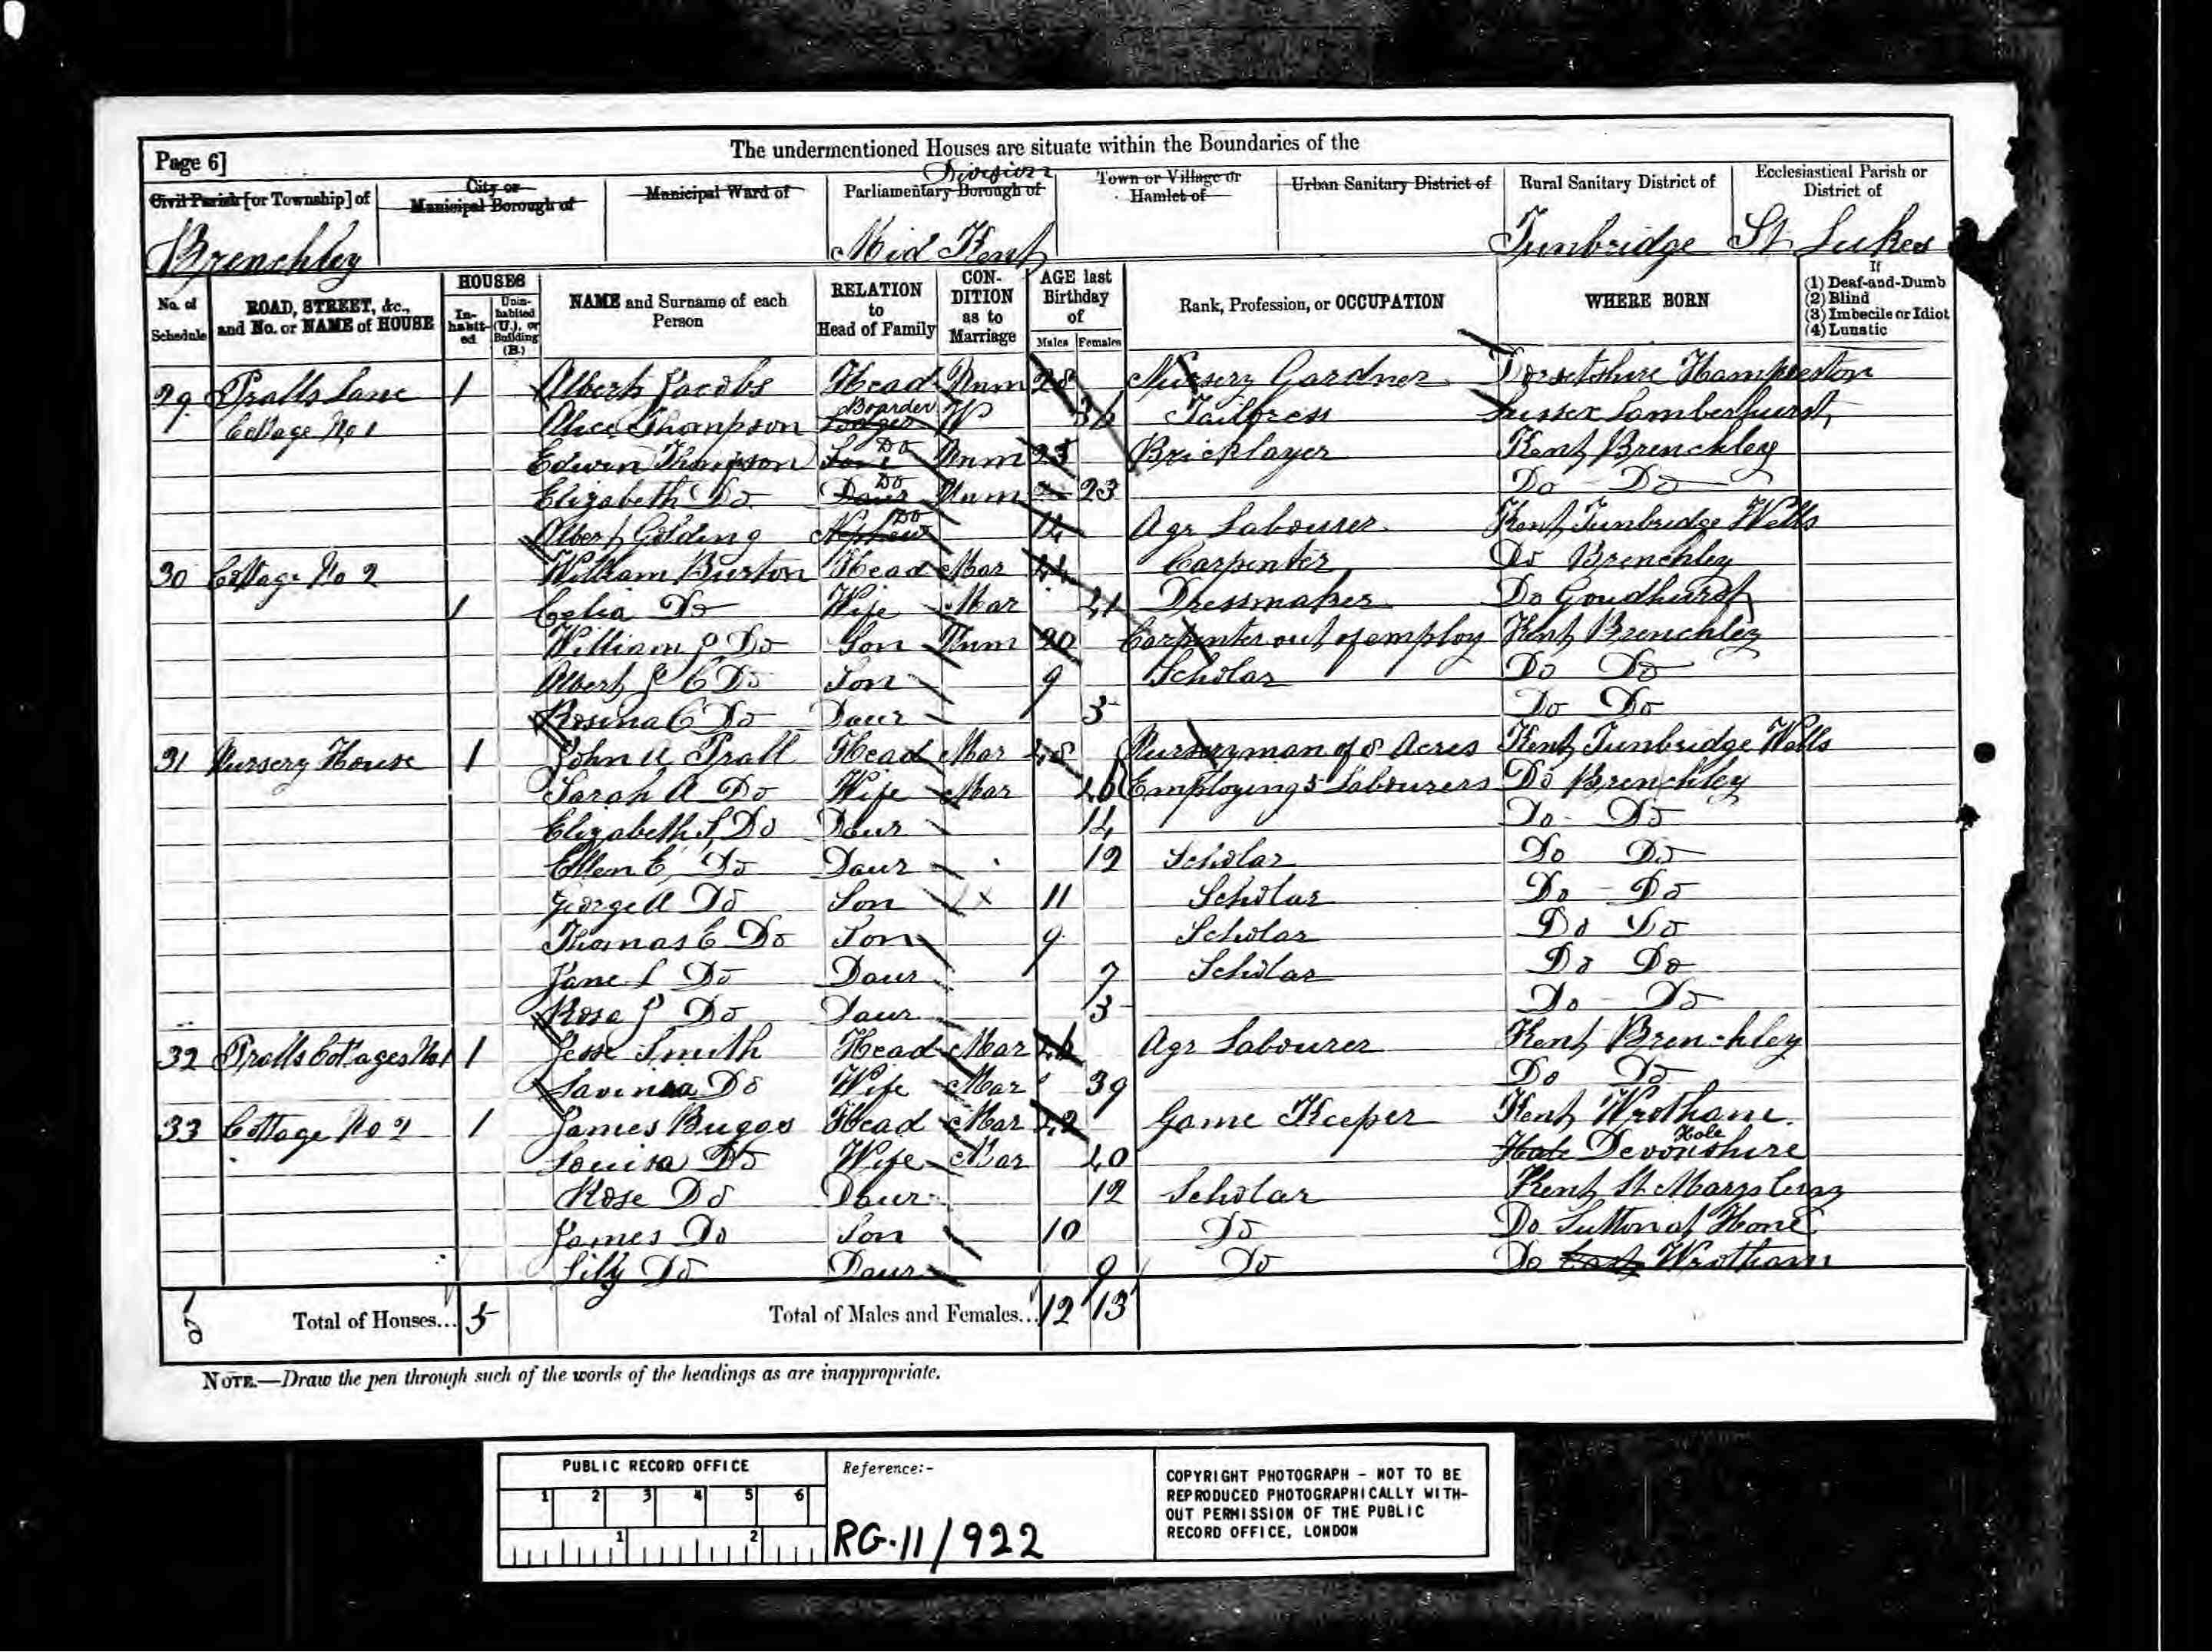 The undermentioned Houses are situate within the Boundaries of the
Page 6]
Civil Parish [or Township] of
City or Municipal Borough of
Municipal Ward of
Parliamentary Borough of Division
Town or Village or Hamlet of
Urban Sanitary District of
Rural Sanitary District of
Ecclesiastical Parish or District of
Brenchley Mid Kent Tunbridge St Lukes
No. of Schedule
ROAD, STREET, &c., and No. or NAME of HOUSE
HOUSES
In-habit-ed
Unin-habited (U.), or Building (B.)
NAME and Surname of each Person
RELATION to Head of Family
CON-DITION as to Marriage
AGE last Birthday of
Males Females
Rank, Profession, or OCCUPATION
WHERE BORN
If
(1) Deaf-and-Dumb
(2) Blind
(3) Imbecile or Idiot
(4) Lunatic
29 Pralls Lane 1 Albert Jacobs Head Unm 28 Nursery Gardner Dorsetshire Hampreston
Cottage No 1 Alice Thompson Lodger Boarder W Tailoress Sussex Lamberhurst
Edwin Thompson Son Do Unm 23 Bricklayer Kent Brenchley
Elizabeth Do Daur Do Unm 23 Do Do
Albert Golding Nephew Do 14 Agr Labourer Kent Tunbridge Wells
30 Cottage No 2 William Burton Head Mar 44 Carpenter Do Brenchley
1 Celia Do Wife Mar 41 Dressmaker Do Goudhurst
William J Do Son Unm 20 Carpenter out of employ Kent Brenchley
Albert J C Do Son 9 Scholar Do Do
Rosina C Do Daur 3 Do Do
31 Nursery House 1 John A Prall Head Mar 48 Nurseryman of 8 Acres Kent Tunbridge Wells
Sarah A Do Wife Mar 46 Employing 5 Labourers Do Brenchley
Elizabeth S Do Daur 14 Do Do
Ellen E Do Daur 12 Scholar Do Do
George A Do Son 11 Scholar Do Do
Thomas C Do Son 9 Scholar Do Do
Jane L Do Daur 7 Scholar Do Do
Rose J Do Daur 3 Do Do
32 Pralls Cottages No 1 1 Jesse Smith Head Mar 46 Agr Labourer Kent Brenchley
Savinia Do Wife Mar 39 Do Do
33 Cottage No 2 1 James Buggs Head Mar 42 Game Keeper Kent Wrotham
Louisa Do Wife Mar 40 Devonshire Hole
Rose Do Daur 12 Scholar Kent St Marys Cray
James Do Son 10 Do Do Sutton at Hone
Lily Do Daur 9 Do Do East Wrotham
Total of Houses... 5 Total of Males and Females... 12 13
NOTE.—Draw the pen through such of the words of the headings as are inappropriate.
PUBLIC RECORD OFFICE
1 2 3 4 5 6
1 2
Reference:-
RG.11/922
COPYRIGHT PHOTOGRAPH - NOT TO BE
REPRODUCED PHOTOGRAPHICALLY WITH-
OUT PERMISSION OF THE PUBLIC
RECORD OFFICE, LONDON